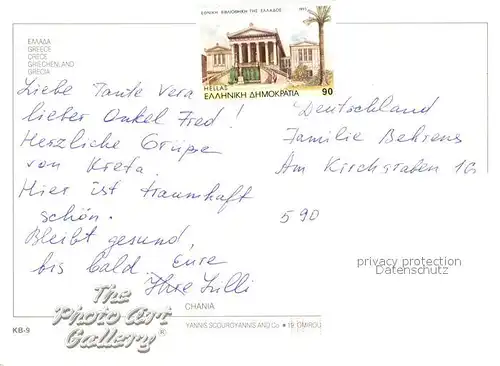 ΕΘΝΙΚΗ ΒΙΒΛΙΟΘΗΚΗ ΤΗΣ ΕΛΛΑΔΟΣ 1993
HELLAS 90
ΕΛΛΗΝΙΚΗ ΔΗΜΟΚΡΑΤΙΑ
ΕΛΛΑΔΑ
GREECE
GRECE
GRIECHENLAND
GRECIA
Liebe Tante Vera
lieber Onkel Fred!
Herzliche Grüße
von Kreta.
Hier ist traumhaft
schön.
Bleibt gesund,
bis bald. Eure
Ihre Lilli
Deutschland
Familie Behrens
Am Kirchgraben 16
590
privacy protection
Datenschutz
CHANIA
The
Photo Art
Gallery®
KB-9
YANNIS SCOUROYANNIS AND Co • 19, OMIROU